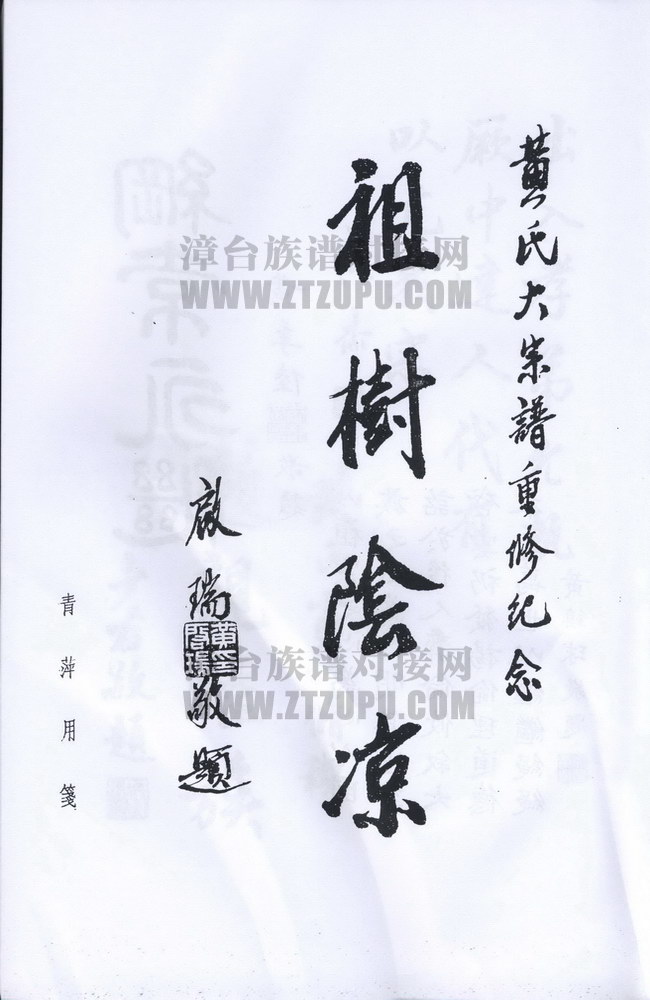 黄氏大宗譜重修纪念
祖樹陰凉
啟瑞敬題
黄啓瑞印
青萍用箋
漳台族谱对接网
WWW.ZTZUPU.COM
漳台族谱对接网
WWW.ZTZUPU.COM